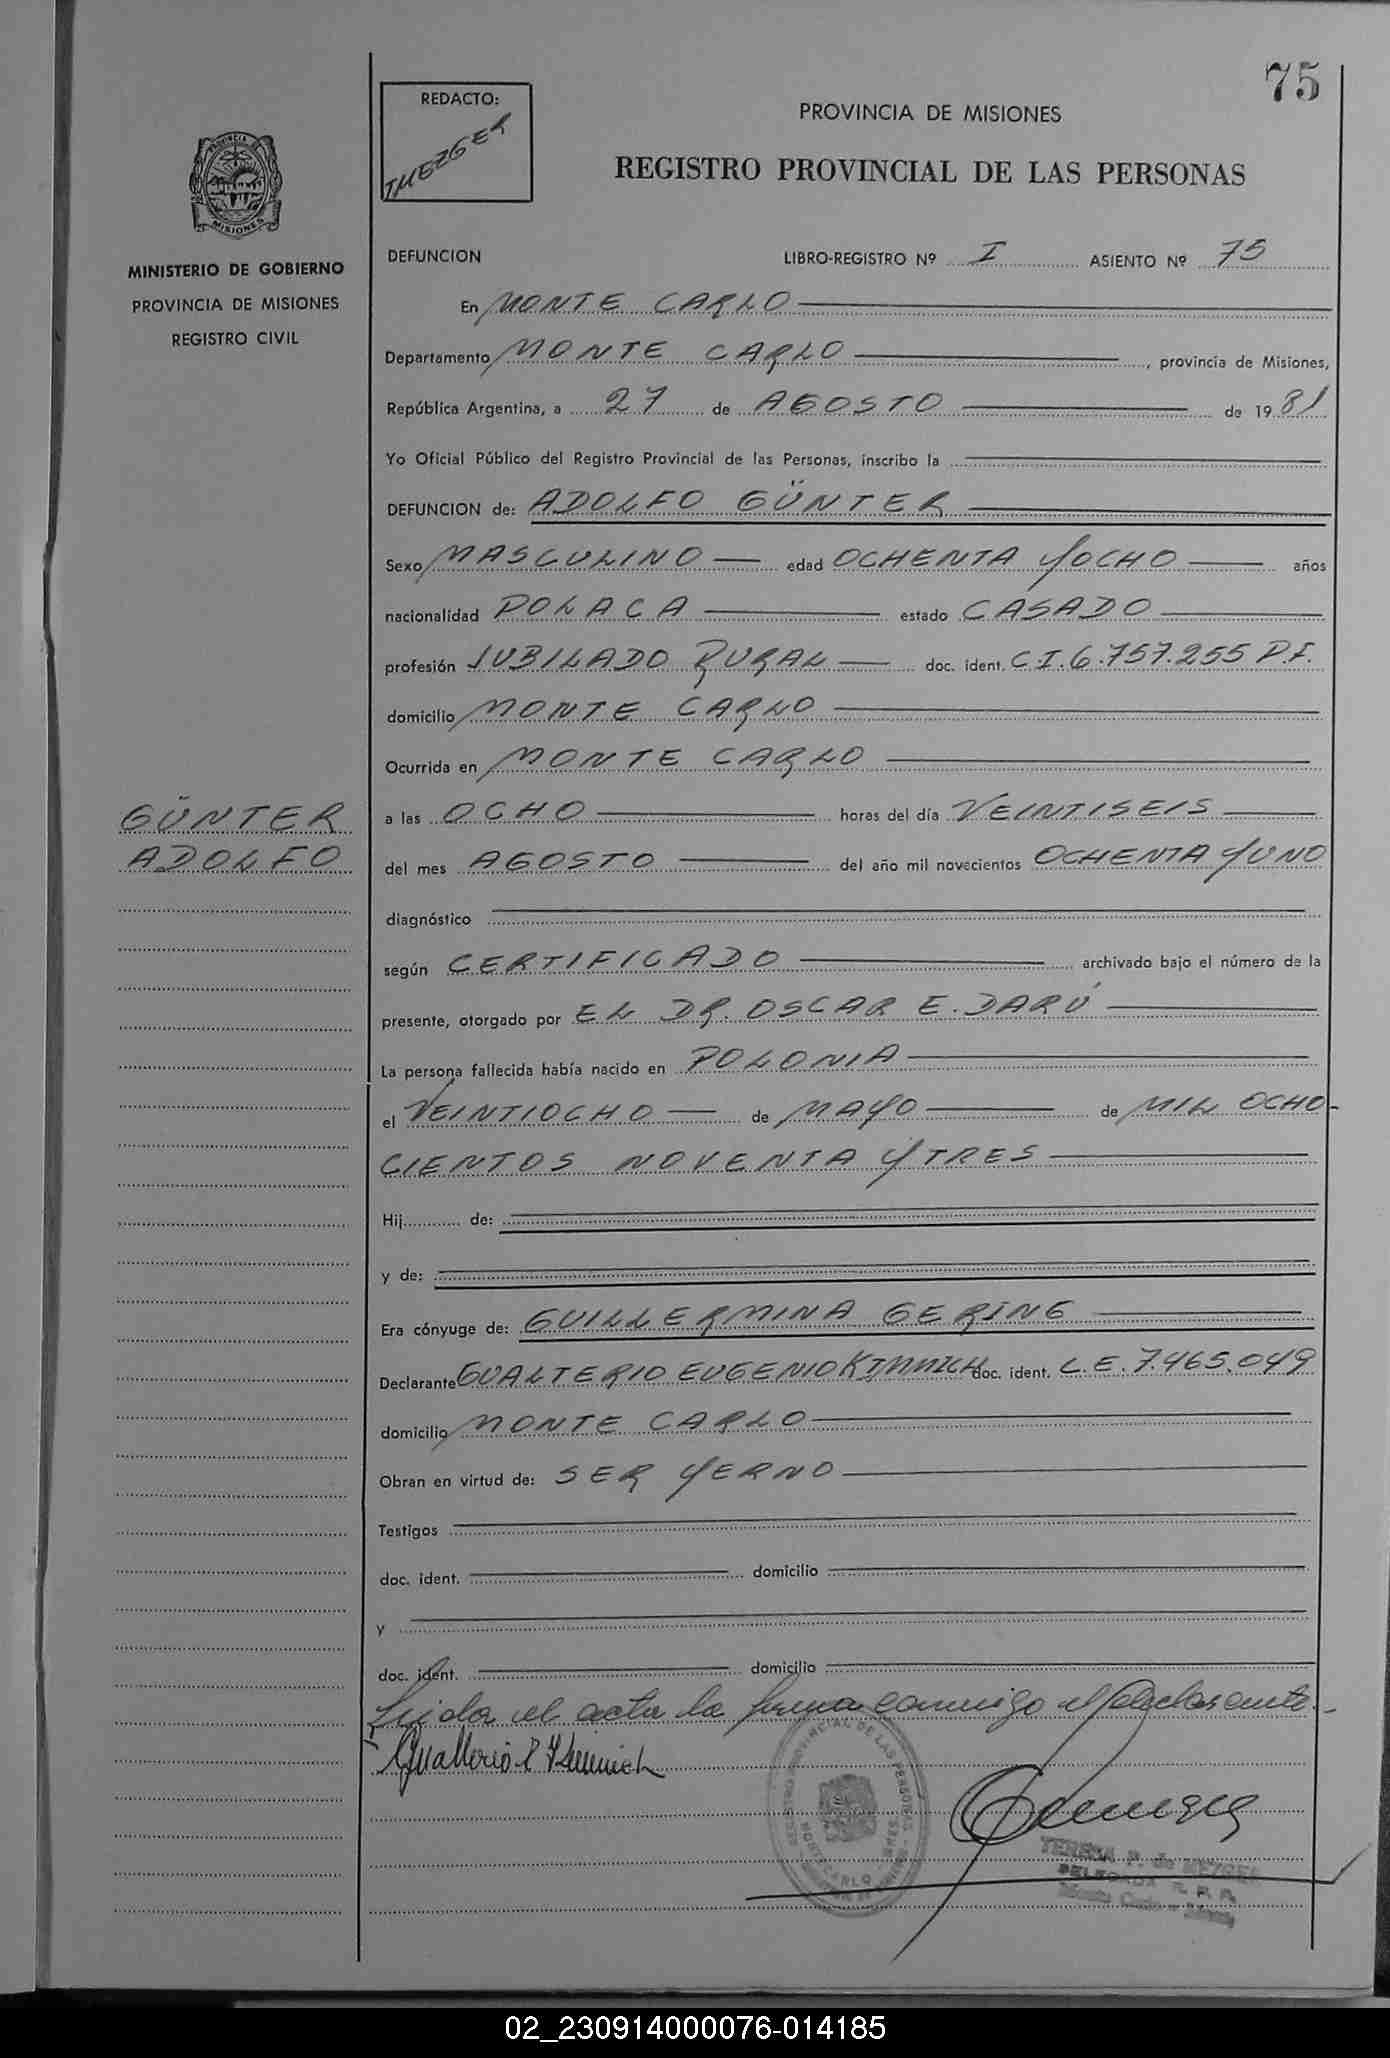 75
REDACTO:
TMEZGER
PROVINCIA DE MISIONES
REGISTRO PROVINCIAL DE LAS PERSONAS
PROVINCIA DE
MISIONES
MINISTERIO DE GOBIERNO
PROVINCIA DE MISIONES
REGISTRO CIVIL
DEFUNCION LIBRO-REGISTRO Nº I ASIENTO Nº 75
En MONTE CARLO
Departamento MONTE CARLO, provincia de Misiones,
República Argentina, a 27 de AGOSTO de 1981
Yo Oficial Público del Registro Provincial de las Personas, inscribo la
DEFUNCION de: ADOLFO GÜNTER
Sexo MASCULINO edad OCHENTA Y OCHO años
nacionalidad POLACA estado CASADO
profesión JUBILADO RURAL doc. ident. C.I. 6.757.255 P.F.
domicilio MONTE CARLO
Ocurrida en MONTE CARLO
GÜNTER
ADOLFO
a las OCHO horas del día VEINTISEIS
del mes AGOSTO del año mil novecientos OCHENTA Y UNO
diagnóstico
según CERTIFICADO archivado bajo el número de la
presente, otorgado por EL DR. OSCAR E. DARÚ
La persona fallecida había nacido en POLONIA
el VEINTIOCHO de MAYO de MIL OCHO-
CIENTOS NOVENTA Y TRES
Hij de:
y de:
Era cónyuge de: GUILLERMINA GERING
Declarante GUALTERIO EUGENIO KIMMICH doc. ident. L.E. 7.465.049
domicilio MONTE CARLO
Obran en virtud de: SER YERNO
Testigos
doc. ident. domicilio
y
doc. ident. domicilio
Leida el acta la firma conmigo el declarante.-
Gualterio E Kimmich
REGISTRO PROVINCIAL DE LAS PERSONAS
MONTE CARLO
TERESA P. de MEZGER
DELEGADA R. P. P.
Monte Carlo - Misiones
02_230914000076-014185